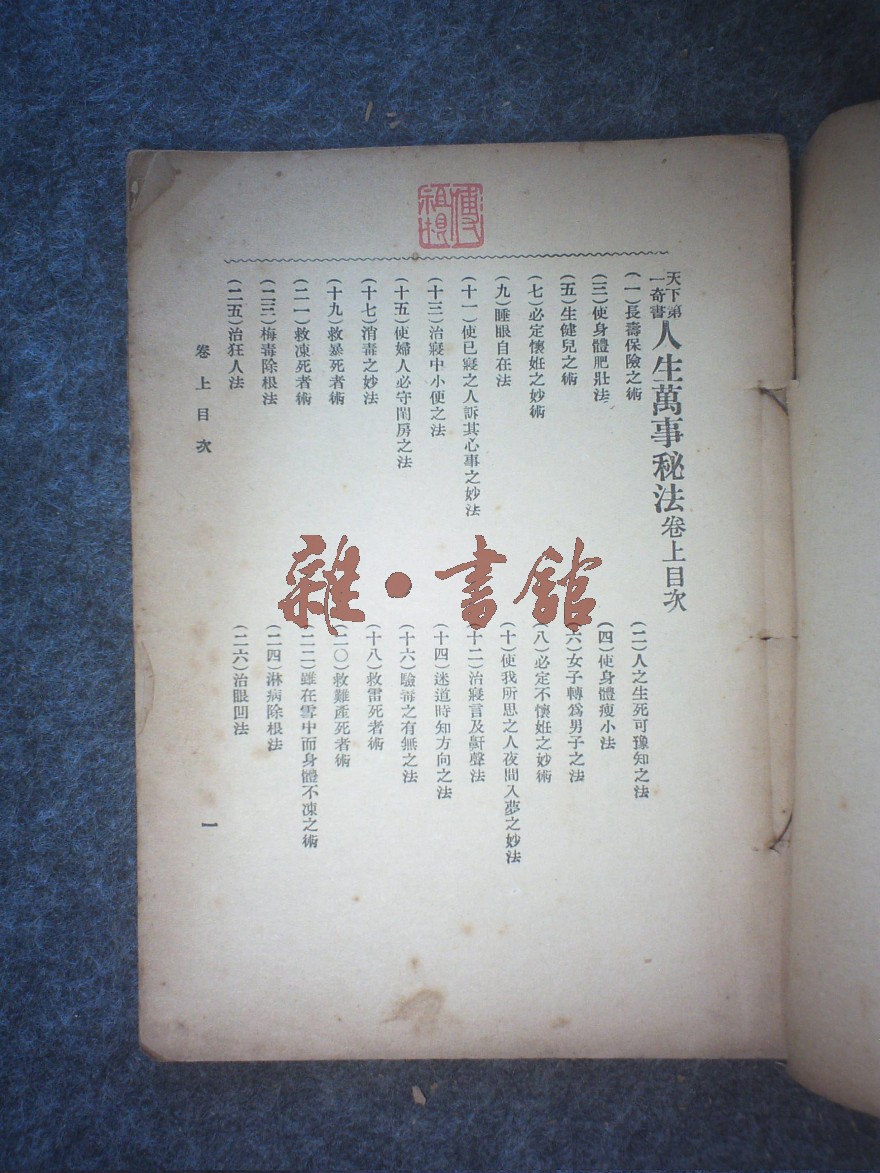 天下第一奇書 人生萬事秘法卷上目次
(一)長壽保險之術 (二)人之生死可豫知之法
(三)使身體肥壯法 (四)使身體瘦小法
(五)生健兒之術 (六)女子轉為男子之法
(七)必定懷姙之妙術 (八)必定不懷姙之妙術
(九)睡眼自在法 (十)使我所思之人夜間入夢之妙法
(十一)使已寢之人訴其心事之妙法 (十二)治寢言及鼾聲法
(十三)治寢中小便之法 (十四)迷道時知方向之法
(十五)使婦人必守閨房之法 (十六)驗毒之有無之法
(十七)消毒之妙法 (十八)救雷死者術
(十九)救暴死者術 (二〇)救難產死者術
(二一)救凍死者術 (二二)雖在雪中而身體不凍之術
(二三)梅毒除根法 (二四)淋病除根法
(二五)治狂人法 (二六)治眼凹法
卷上目次 一
雜·書館